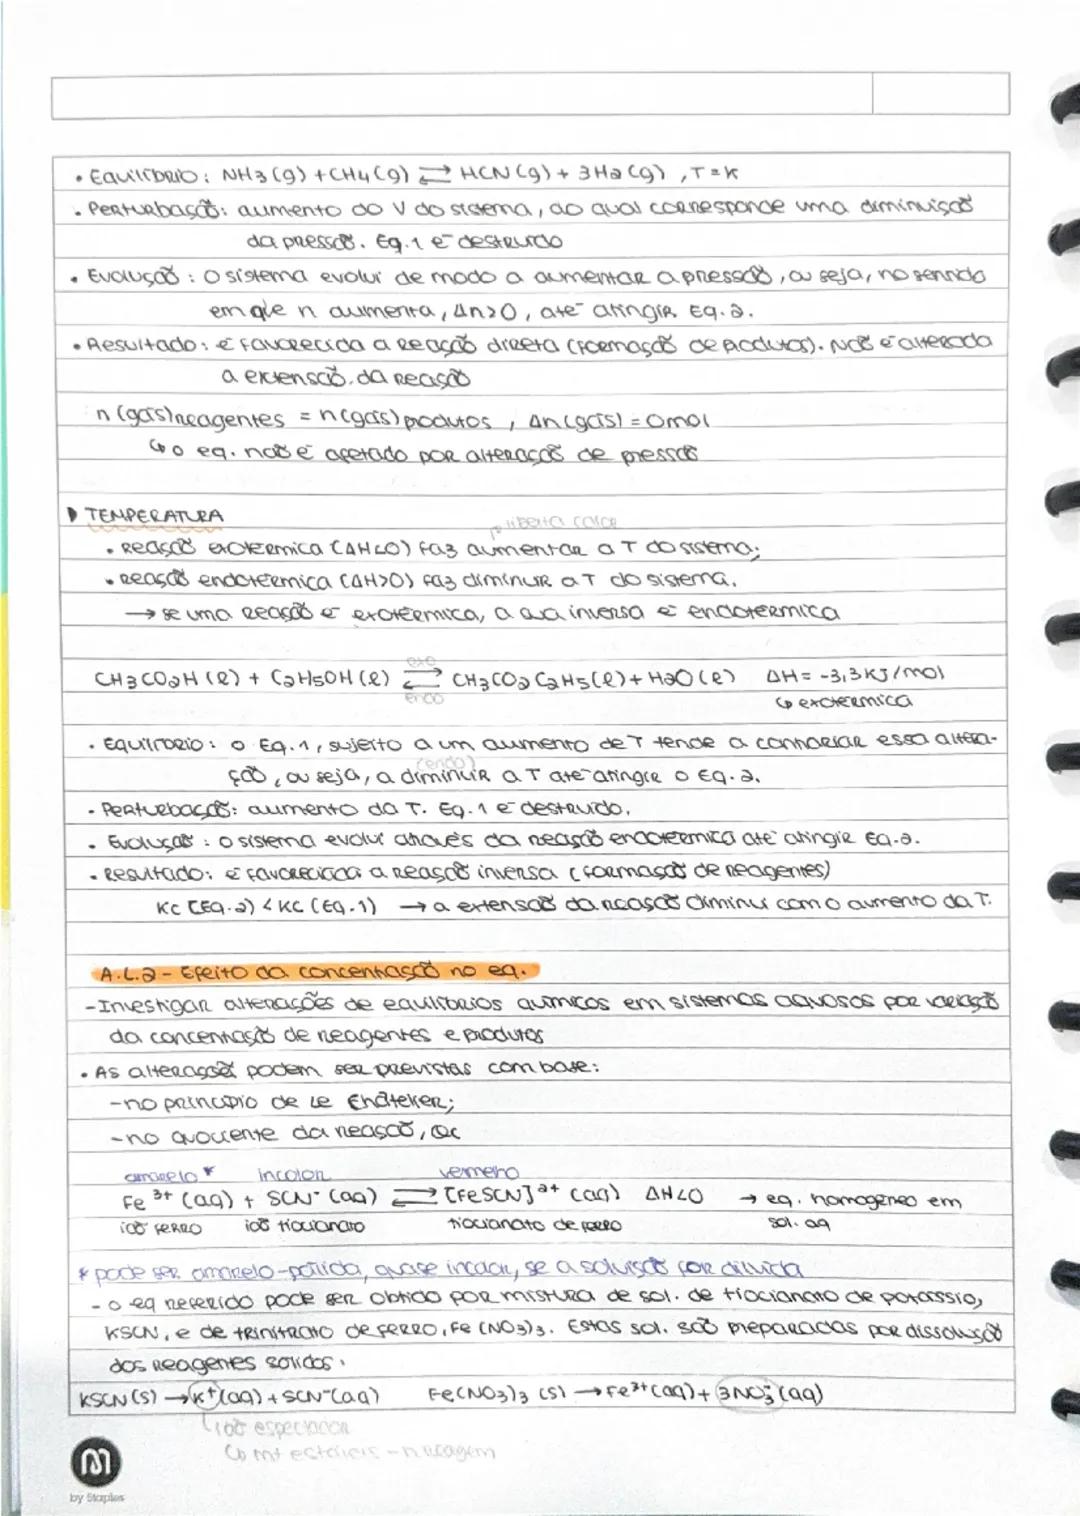 • Equilíbrio: NH3 (g) + CH4 (g) ⇄ HCN (g) + 3H2 (g) , T = K
• Perturbação: aumento do V do sistema, ao qual corresponde uma diminuição
da pressão. Eq.1 é destruído
• Evolução: O sistema evolui de modo a aumentar a pressão, ou seja, no sentido
em que n aumenta, Δn>0, até atingir Eq.2.
• Resultado: é favorecida a reação direta (formação de produtos). Não é alterada
a extensão da reação
n (gás) reagentes = n (gás) produtos , Δn (gás) = 0 mol
↳ o eq. não é afetado por alteração de pressão
▶ TEMPERATURA
liberta calor
• Reação exotérmica (ΔH<0) faz aumentar a T do sistema;
• Reação endotérmica (ΔH>0) faz diminuir a T do sistema.
→ se uma reação é exotérmica, a sua inversa é endotérmica
exo
CH3CO2H (l) + C2H5OH (l) ⇄ CH3CO2C2H5 (l) + H2O (l) ΔH = -3,3 KJ/mol
endo
↳ exotérmica
• Equilíbrio: o Eq.1, sujeito a um aumento de T tende a contrariar essa altera-
(endo)
ção, ou seja, a diminuir a T até atingir o Eq.2.
• Perturbação: aumento da T. Eq.1 é destruído.
• Evolução: o sistema evolui através da reação endotérmica até atingir Eq.2.
• Resultado: é favorecida a reação inversa (formação de reagentes)
Kc (Eq.2) < Kc (Eq.1) → a extensão da reação diminui com o aumento da T.
A.L.2 - Efeito da concentração no eq.
- Investigar alterações de equilíbrios químicos em sistemas aquosos por variação
da concentração de reagentes e produtos
• As alterações podem ser previstas com base:
- no princípio de Le Châtelier;
- no quociente da reação, Qc
amarelo * incolor vermelho
Fe 3+ (aq) + SCN- (aq) ⇄ [FeSCN]2+ (aq) ΔH<0 → eq. homogéneo em
ião ferro ião tiocianato tiocianato de ferro sol. aq
* pode ser amarelo-pálida, quase incolor, se a solução for diluída
- o eq referido pode ser obtido por mistura de sol. de tiocianato de potássio,
KSCN, e de trinitrato de ferro, Fe (NO3)3. Estas sol. são preparadas por dissolução
dos reagentes sólidos.
KSCN (s) → K+ (aq) + SCN- (aq) Fe(NO3)3 (s) → Fe3+ (aq) + 3NO3- (aq)
↳ ião espectador
↳ mt estáveis - n reagem
by Staples